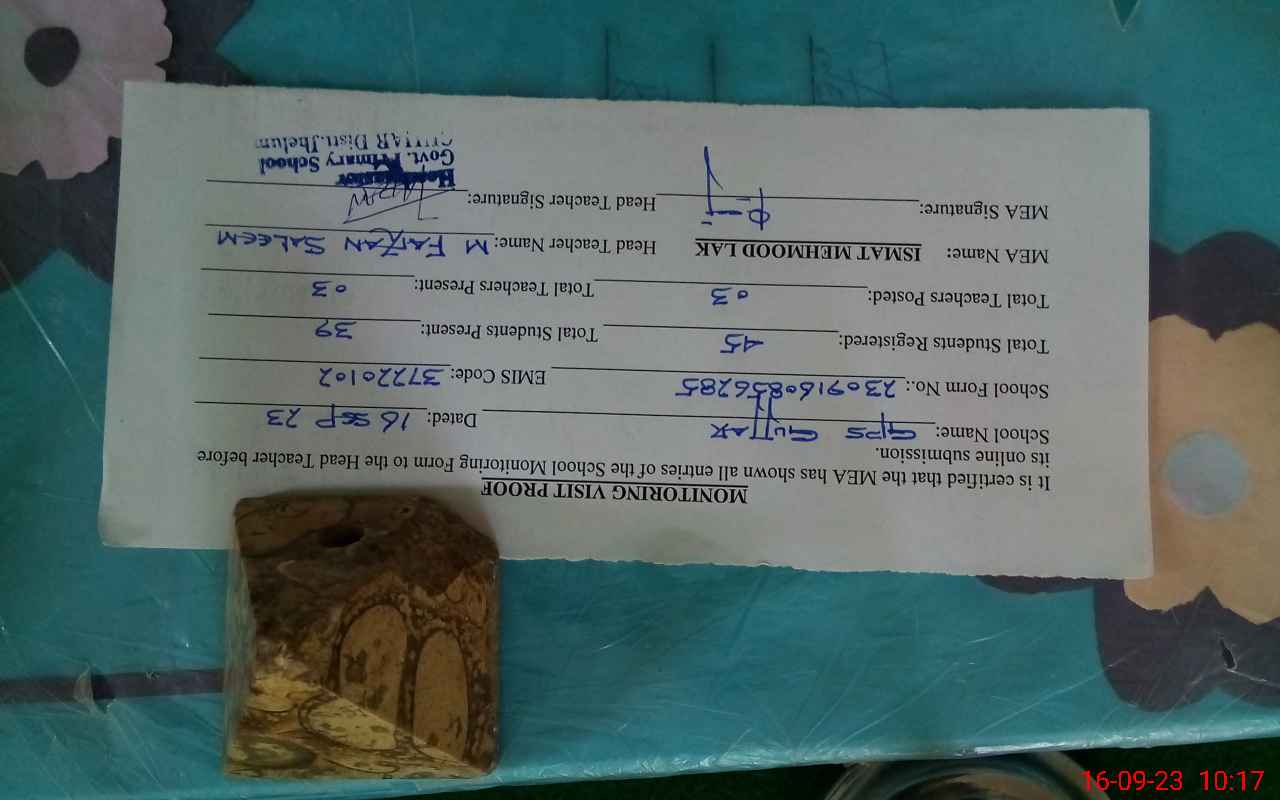 MONITORING VISIT PROOF
It is certified that the MEA has shown all entries of the School Monitoring Form to the Head Teacher before
its online submission.
School Name: GPS GUTTAR Dated: 16 SEP 23
School Form No.: 2309160856285 EMIS Code: 37220102
Total Students Registered: 45 Total Students Present: 39
Total Teachers Posted: 03 Total Teachers Present: 03
MEA Name: ISMAT MEHMOOD LAK Head Teacher Name: M FAIZAN SALEEM
MEA Signature: Head Teacher Signature:
Govt. Primary School
Distt. Jhelum
16-09-23 10:17